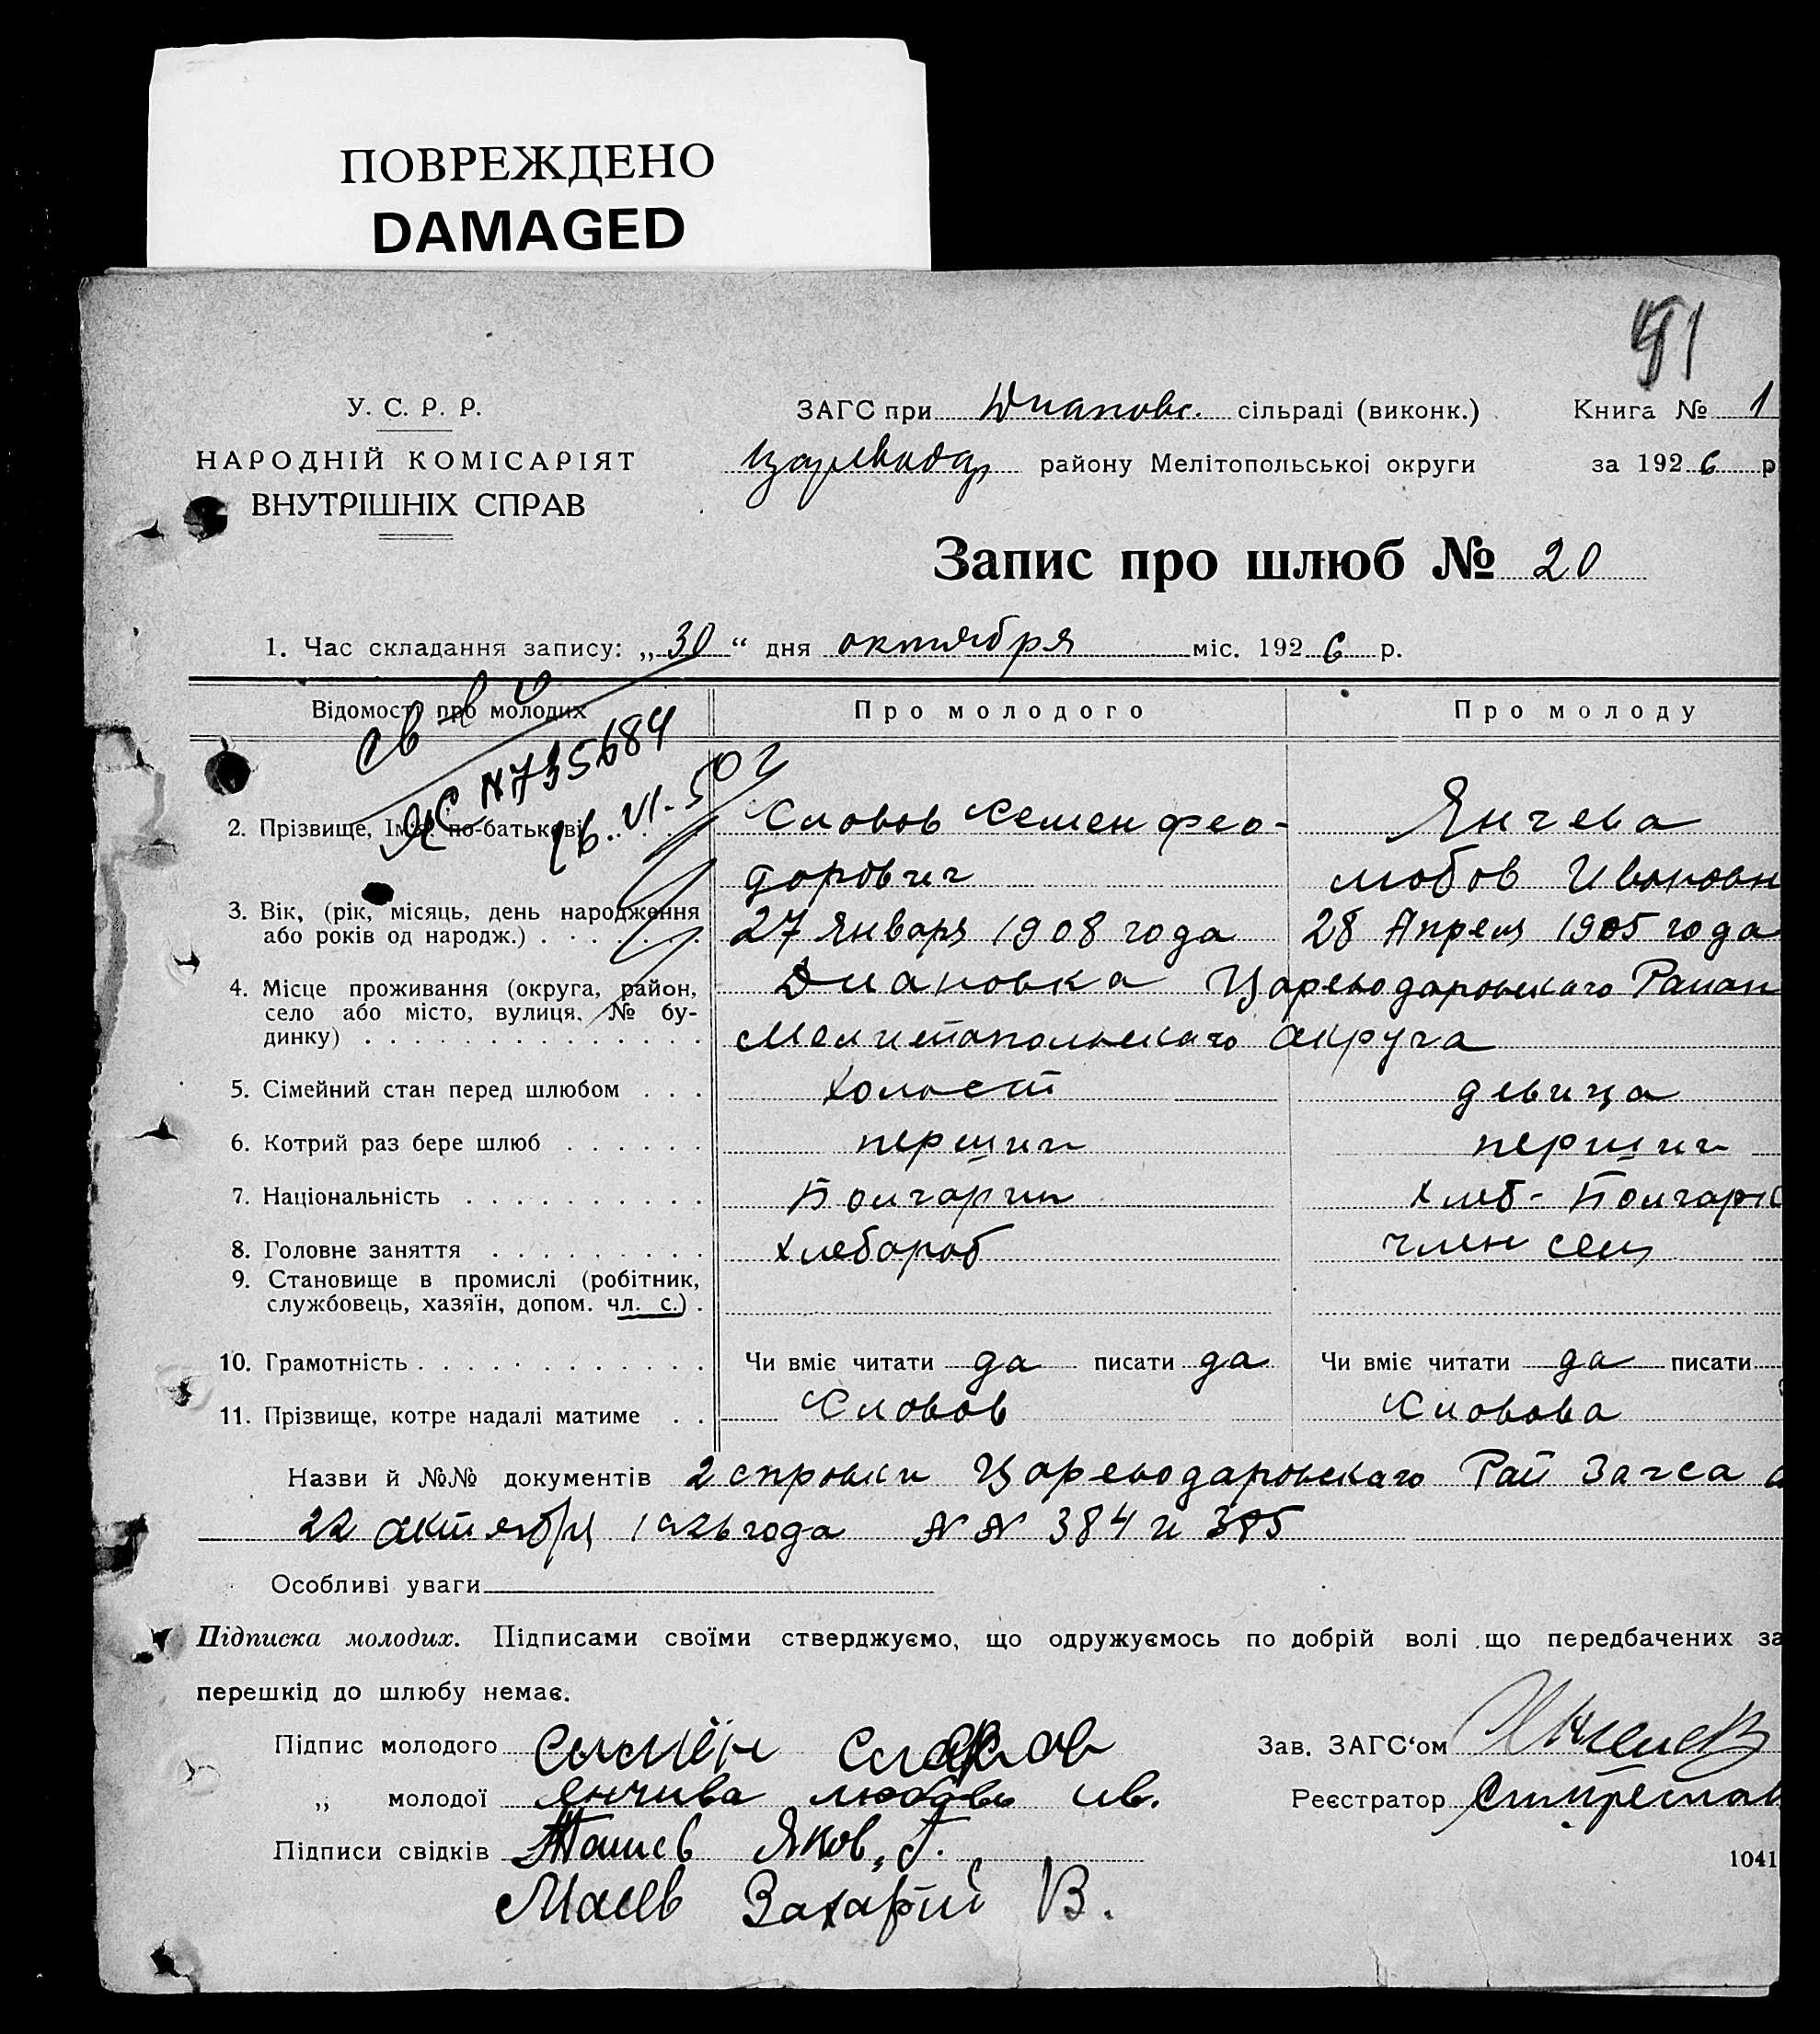 ПОВРЕЖДЕНО
DAMAGED
У. С. Р. Р.
НАРОДНІЙ КОМІСАРІЯТ
ВНУТРІШНІХ СПРАВ
ЗАГС при Диановс. сільраді (виконк.) Книга № 1
району Мелітопольської округи за 1926 р
Запис про шлюб № 20
1. Час складання запису: „30“ дня октября міс. 1926 р.
Відомості про молодих Про молодого Про молоду
N 735684
16.VI-50г
2. Прізвище, Ім'я, по-батькові Словов Семен Фео-
дорович
Янчева
Любов Ивановн
3. Вік, (рік, місяць, день народження
або років од народж.) 27 Января 1908 года 28 Апреля 1905 года
4. Місце проживання (округа, район,
село або місто, вулиця, № бу-
динку)
Диановка Цареводаровскаго Раиан
Мелитопольскаго Округа
5. Сімейний стан перед шлюбом холост девица
6. Котрий раз бере шлюб перший перший
7. Національність Болгарин хлеб- Болгарк
8. Головне заняття хлебороб член сем
9. Становище в промислі (робітник,
службовець, хазяїн, допом. чл. с.)
10. Грамотність Чи вміє читати да писати да Чи вміє читати да писати
11. Прізвище, котре надалі матиме Словов Словова
Назви й №№ документів 2 справки Цареводаровскаго Рай Загса
22 октября 1926 года N N 384 и 385
Особливі уваги
Підписка молодих. Підписами своїми стверджуємо, що одружуємось по добрій волі що передбачених за
перешкід до шлюбу немає.
Підпис молодого Семён Славов Зав. ЗАГС‘ом
„ молодої Янчива любовь ив. Реєстратор
Підписи свідків Яков. Г.
1041
Маев Захарий В.